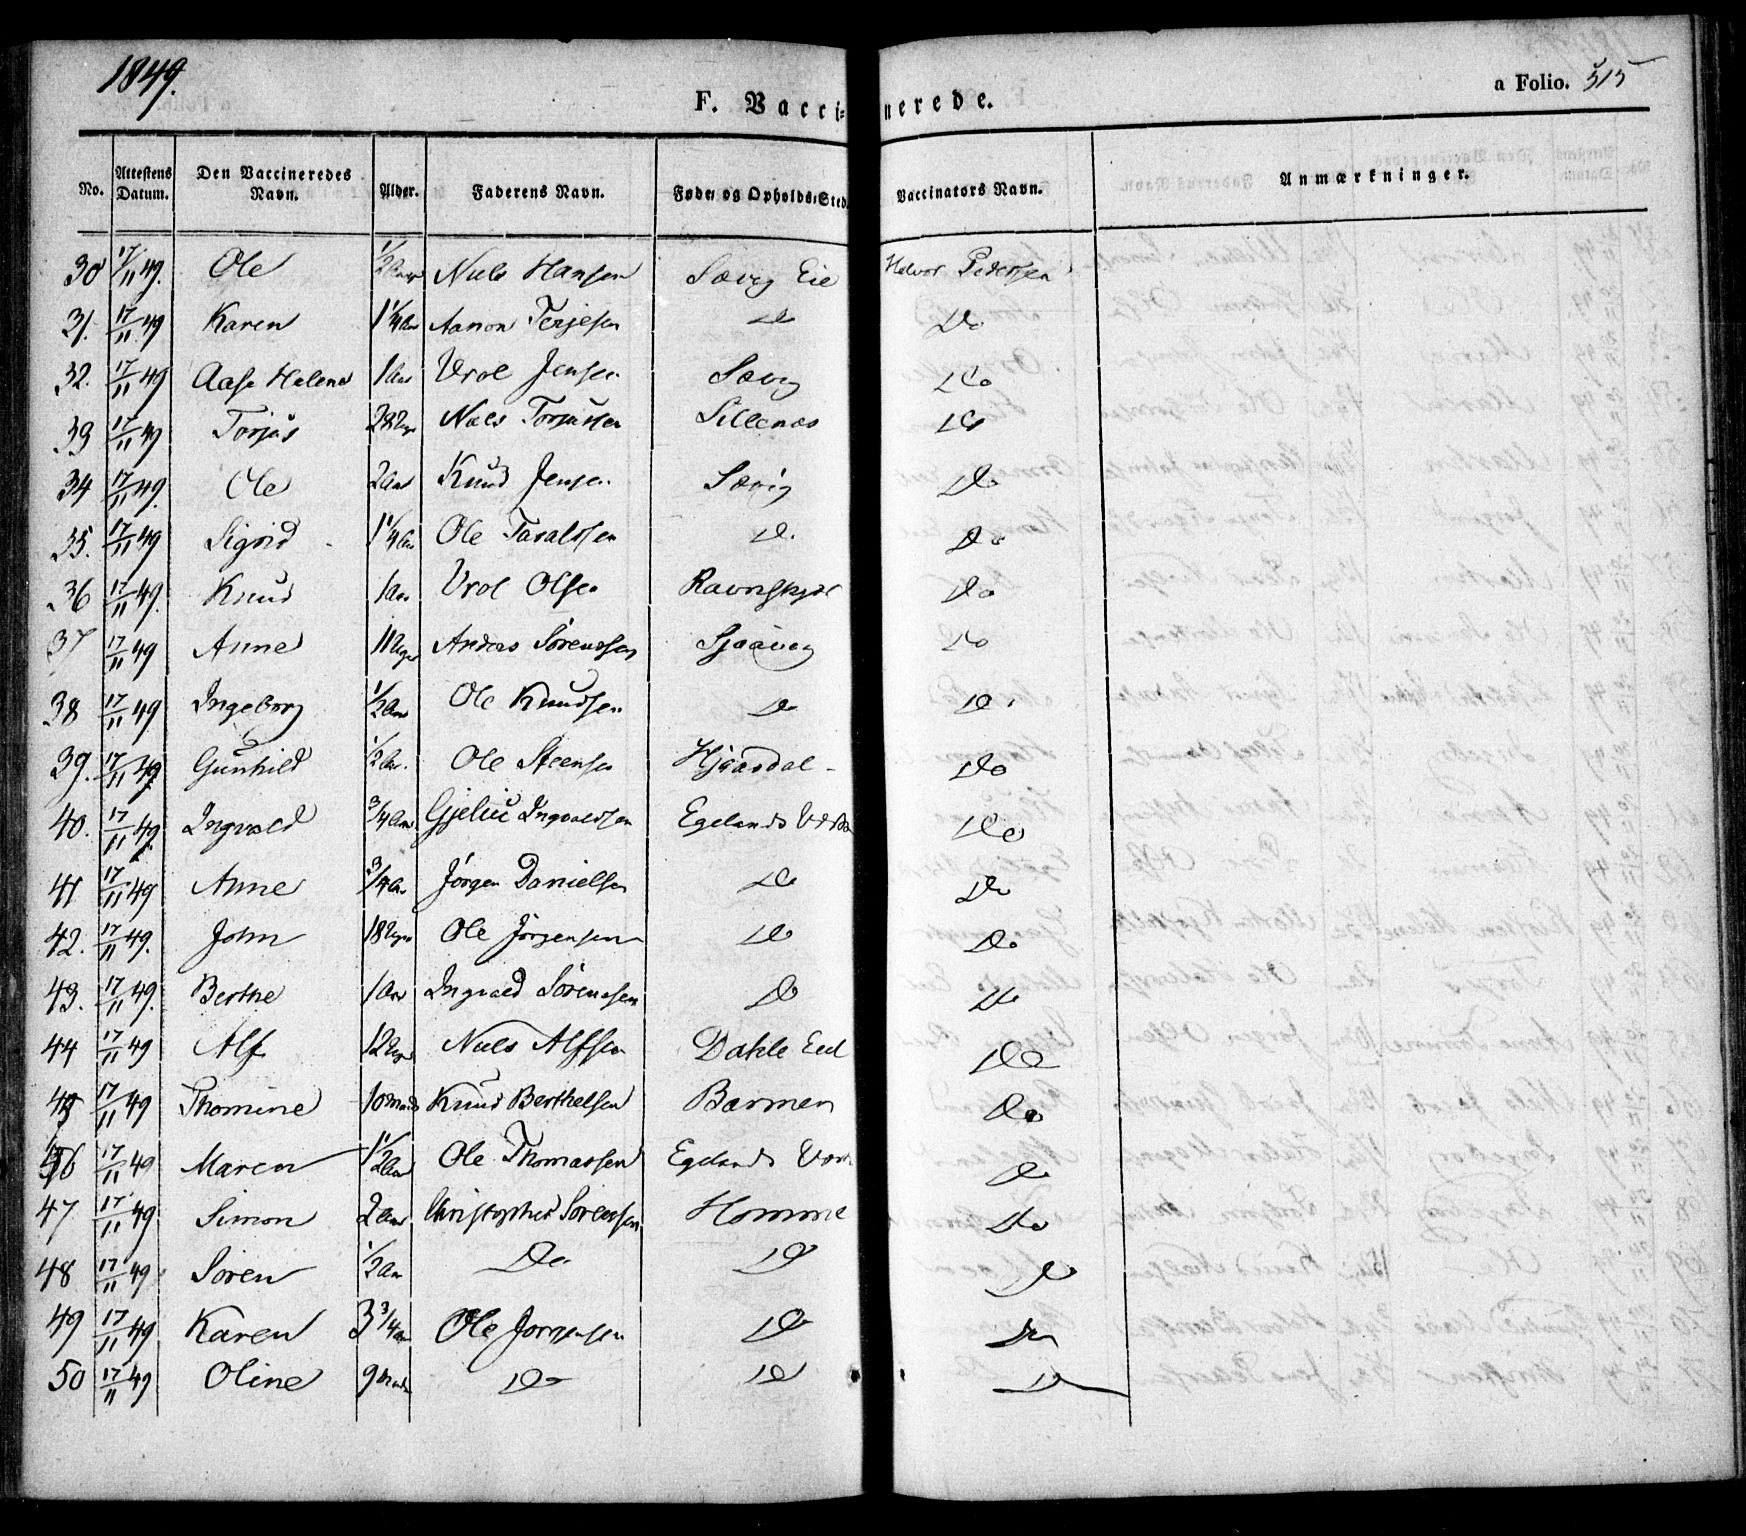 1849.
F. Vaccinerede.
a Folio. 315
No. Attestens Datum. Den Vaccineredes Navn. Alder. Faderens Navn. Føde- og Opholds-Sted. Vaccinators Navn. Anmærkninger.
30 17/11 49. Ole 1/2 Niels Hansen Sævig Eie Halvor Pedersen
31. 17/11 49 Karen 1 1/4 Aar Aanon Terjesen Do Do
32. 17/11 49 Aase Helene 1 Aar Vrol Jensen Sævig Do
33 17/11 49 Torjus Niels Torjussen Sillenæs Do
34 17/11 49. Ole 2 Aar Knud Jensen Sævig Do
35. 17/11 49 Sigrid 1 1/4 Aar Ole Taraldsen D. Do
36 17/11 49. Knud 1 Aar Vrol Olsen Ravneskjær Do
37 17/11 49 Anne 11 Uger Anders Sørensen Sjaavåg Do
38 17/11 49 Ingeborg 1/2 Aar Ole Knudsen Do Do
39. 17/11 49 Gunhild 1/2 Aar. Ole Steensen Hjaasdal Do
40. 17/11 49. Ingvald 3/4 Aar Gjelius Ingvaldsen Egelands Værk Do
41 17/11 49 Anne 3/4 Aar Jørgen Danielsen Do Do
42. 17/11 49. John 18 Uger Ole Jørgensen Do Do
43. 17/11 49. Berthe 1 Aar Ingvald Sørensen Do Do
44 17/11 49 Alf 12 Uger Niels Alfsen Dahle Eid Do
45 17/11 49 Thomine 10 Maand Knud Berthelsen Barmen Do
46 17/11 49 Maren 1 1/2 Aar Ole Thomassen Egelands Værk Do
47 17/11 49 Simon 2 Aar Christopher Sørensen Homme Do
48 17/11 49 Søren 1/2 Aar Do Do Do
49 17/11 49 Karen 3 3/4 Aar Ole Jørgensen Do Do
50 17/11 49 Oline 9 Maand Do Do D